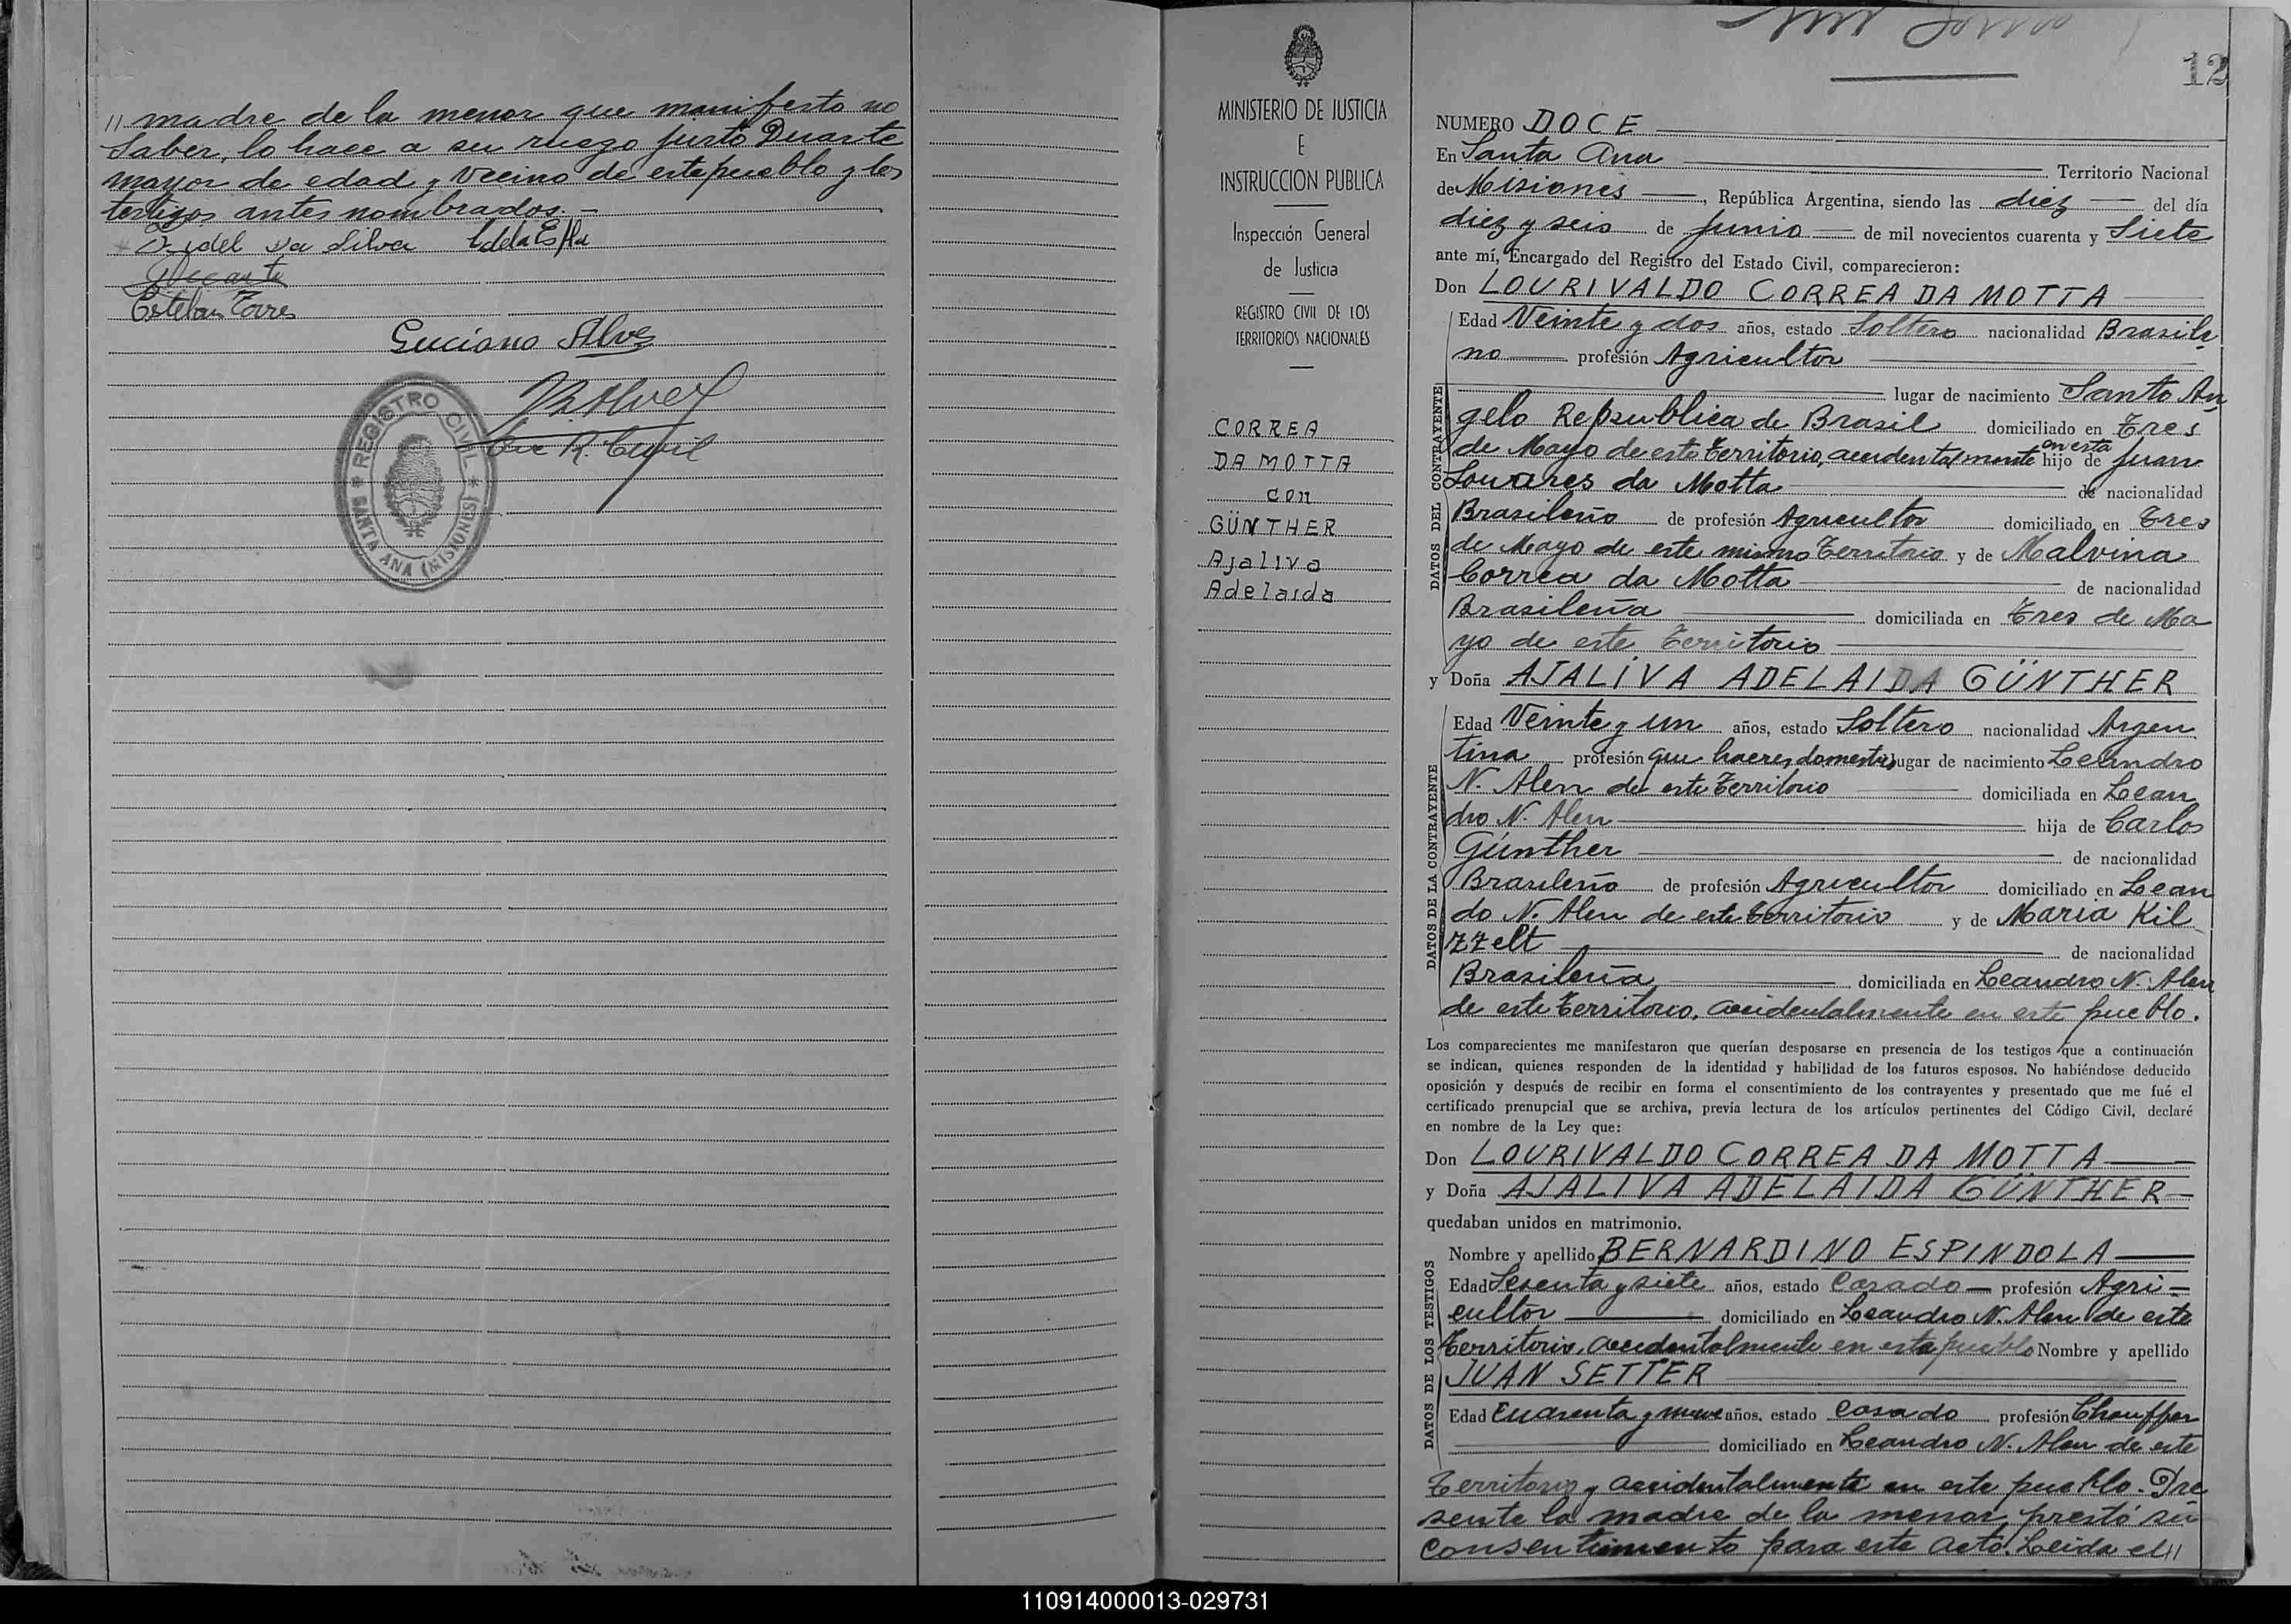 // madre de la menor que manifesto no
saber, lo hace a su ruego Justo Duarte
mayor de edad y vecino de este pueblo y los
testigos antes nombrados. -
Fidel da Silva
JDuarte
Esteban Torres
Luciano Alvez
REGISTRO CIVIL
SANTA ANA (MISIONES)
Enc R. Civil
MINISTERIO DE JUSTICIA
E
INSTRUCCION PUBLICA
Inspección General
de Justicia
REGISTRO CIVIL DE LOS
TERRITORIOS NACIONALES
CORREA
DA MOTTA
con
GÜNTHER
Ajaliva
Adelaida
12
NUMERO DOCE
En Santa Ana Territorio Nacional
de Misiones, República Argentina, siendo las diez del día
diez y seis de Junio de mil novecientos cuarenta y Siete
ante mí, Encargado del Registro del Estado Civil, comparecieron:
Don LOURIVALDO CORREA DA MOTTA
DATOS DEL CONTRAYENTE
Edad Veinte y dos años, estado Soltero nacionalidad Brasile
no profesión Agricultor
lugar de nacimiento Santo An
gelo Republica de Brasil domiciliado en Tres
de Mayo de este Territorio, accidentalmente en esta hijo de Juan
Louares da Motta de nacionalidad
Brasileño de profesión Agricultor domiciliado en Tres
de Mayo de este mismo Territorio y de Malvina
Correa da Motta de nacionalidad
Brasileña domiciliada en Tres de Ma
yo de este Territorio
y Doña AJALIVA ADELAIDA GÜNTHER
DATOS DE LA CONTRAYENTE
Edad Veinte y un años, estado Soltero nacionalidad Argen
tina profesión que haceres domesticos lugar de nacimiento Leandro
N. Alen de este Territorio domiciliada en Lean
dro N. Alen hija de Carlos
Günther de nacionalidad
Brasileño de profesión Agricultor domiciliado en Lean
do N. Alen de este territorio y de Maria Kil
zzelt de nacionalidad
Brasileña domiciliada en Leandro N. Alen
de este Territorio, accidentalmente en este pueblo.
Los comparecientes me manifestaron que querían desposarse en presencia de los testigos que a continuación
se indican, quienes responden de la identidad y habilidad de los futuros esposos. No habiéndose deducido
oposición y después de recibir en forma el consentimiento de los contrayentes y presentado que me fué el
certificado prenupcial que se archiva, previa lectura de los artículos pertinentes del Código Civil, declaré
en nombre de la Ley que:
Don LOURIVALDO CORREA DA MOTTA
y Doña AJALIVA ADELAIDA GÜNTHER
quedaban unidos en matrimonio.
DATOS DE LOS TESTIGOS
Nombre y apellido BERNARDINO ESPINDOLA
Edad Sesenta y siete años, estado Casado profesión Agri-
cultor domiciliado en Leandro N. Alen de este
Territorio, accidentalmente en este pueblo Nombre y apellido
JUAN SETTER
Edad Cuarenta y nueve años, estado Casado profesión Chauffer
domiciliado en Leandro N. Alen de este
Territorio y accidentalmente en este pueblo. Pre
sente la madre de la menor, prestó su
consentimiento para este acto. Leida el //
110914000013-029731